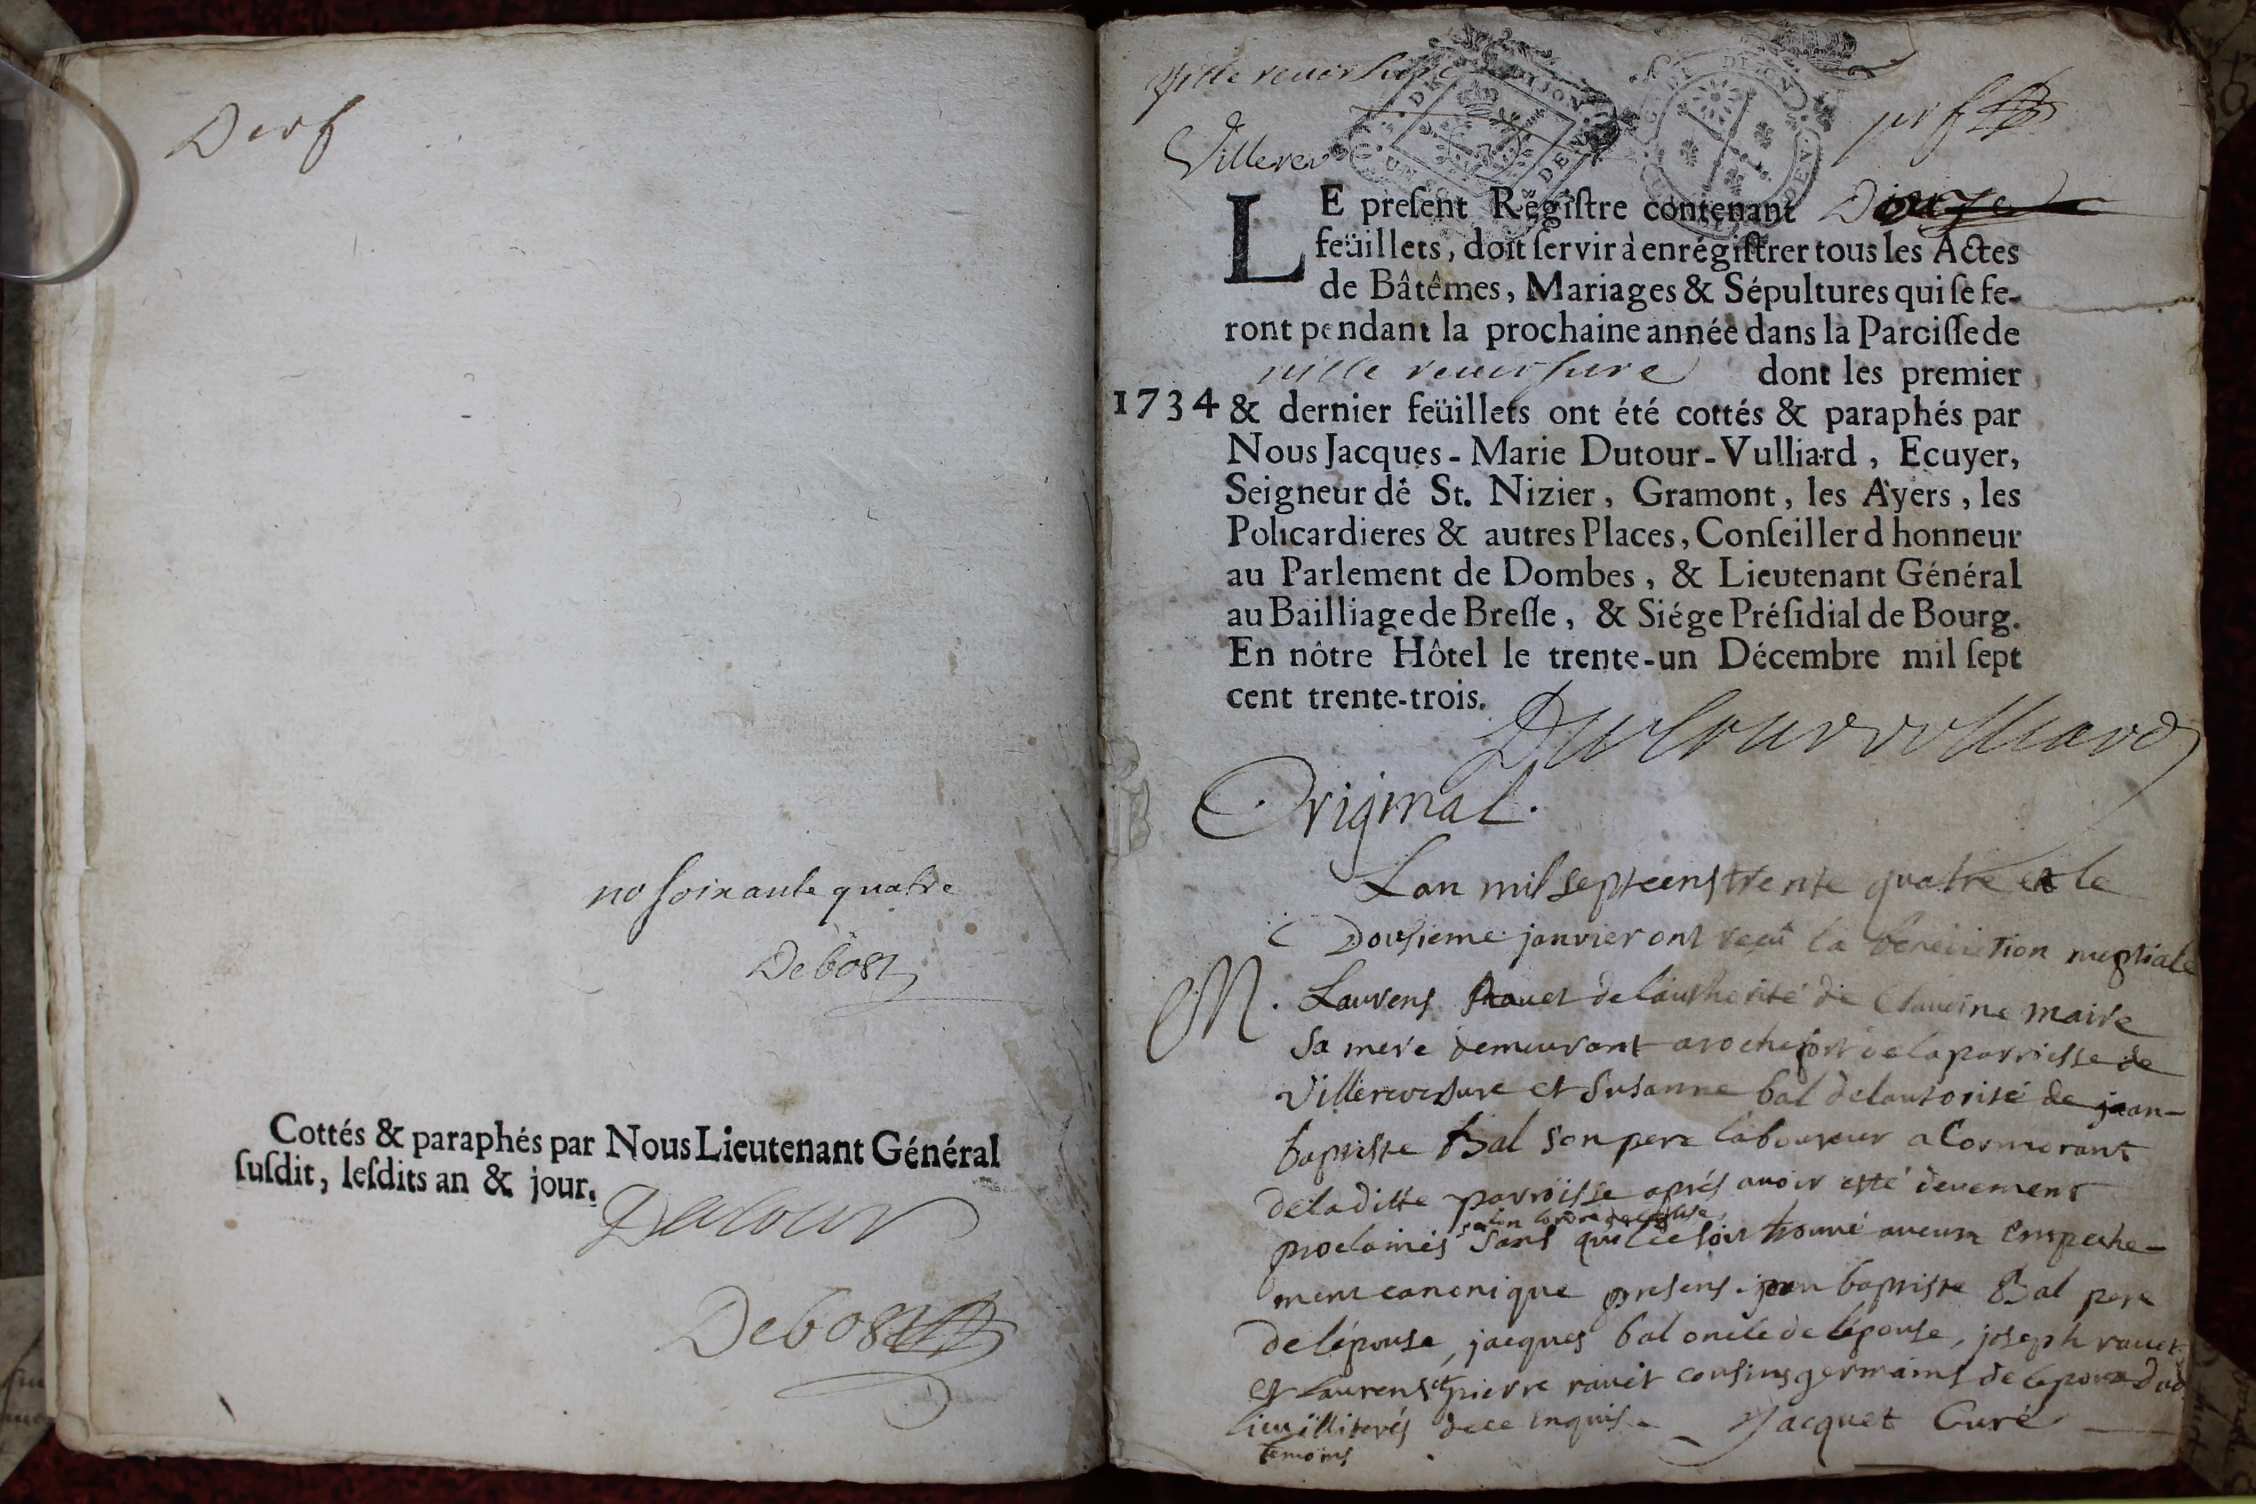 Derf
no soixante quatre
Debost
Cottés & paraphés par Nous Lieutenant Général
ſuſdit, leſdits an & jour.
Dutour
Debost
Ville reversure
Villerev
DIJON
LE preſent Regiſtre contenant
feüillets, doit ſervir à enrégiſtrer tous les Actes
de Bâtêmes, Mariages & Sépultures qui ſe fe-
ront pendant la prochaine année dans la Paroiſſe de
ville reversure dont les premier
1734 & dernier feüillets ont été cottés & paraphés par
Nous Jacques-Marie Dutour-Vulliard, Ecuyer,
Seigneur de St. Nizier, Gramont, les Ayers, les
Policardieres & autres Places, Conſeiller d honneur
au Parlement de Dombes, & Lieutenant Général
au Bailliage de Breſſe, & Siége Préſidial de Bourg.
En nôtre Hôtel le trente-un Décembre mil ſept
cent trente-trois.
Dutour vulliard
Original.
Lan mil septcens trente quatre et le
Dousieme janvier ont reçu la benediction nuptiale
M. Laurens Rauet de lauthorité de Claudine maire
sa mere demeurant a rochefort de la parroisse de
Villereversure et Susanne bal de lautorité de jean-
baptiste Bal son pere laboureur a Cormorant
de la ditte parroisse aprés avoir esté deuement
selon lordre de leglise
proclamés sans quil se soit trouvé aucun empeche-
ment canonique presens jean baptiste Bal pere
de lépouse, jacques bal oncle de lépouse, joseph rauet
et Laurens et pierre rauet cousins germains de lepoux dud
lieu illiterés de ce enquis. Jacquet Curé
temoins